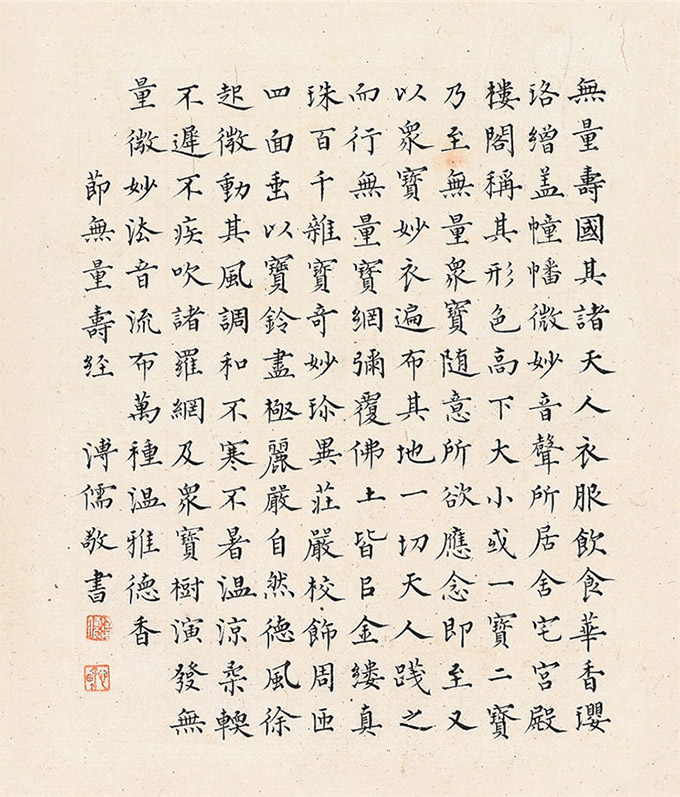 無量壽國其諸天人衣服飲食華香瓔
珞繒盖幢幡微妙音聲所居舍宅宮殿
樓閣稱其形色高下大小或一寶二寶
乃至無量眾寶随意所欲應念即至又
以眾寶妙衣遍布其地一切天人踐之
而行無量寶網彌覆佛土皆㠯金縷真
珠百千雜寶奇妙珎異莊嚴校飾周匝
四面垂以寶鈴盡極麗嚴自然德風徐
起微動其風調和不寒不暑温涼柔輭
不遲不疾吹諸羅網及眾寶樹演發無
量微妙法音流布萬種温雅德香
節無量壽経 溥儒敬書